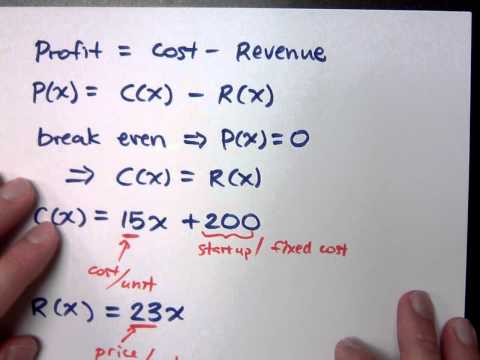 Profit = Cost - Revenue
P(x) = C(x) - R(x)
break even ⇒ P(x) = 0
⇒ C(x) = R(x)
C(x) = 15x + 200
startup / fixed cost
cost / unit
R(x) = 23x
price /